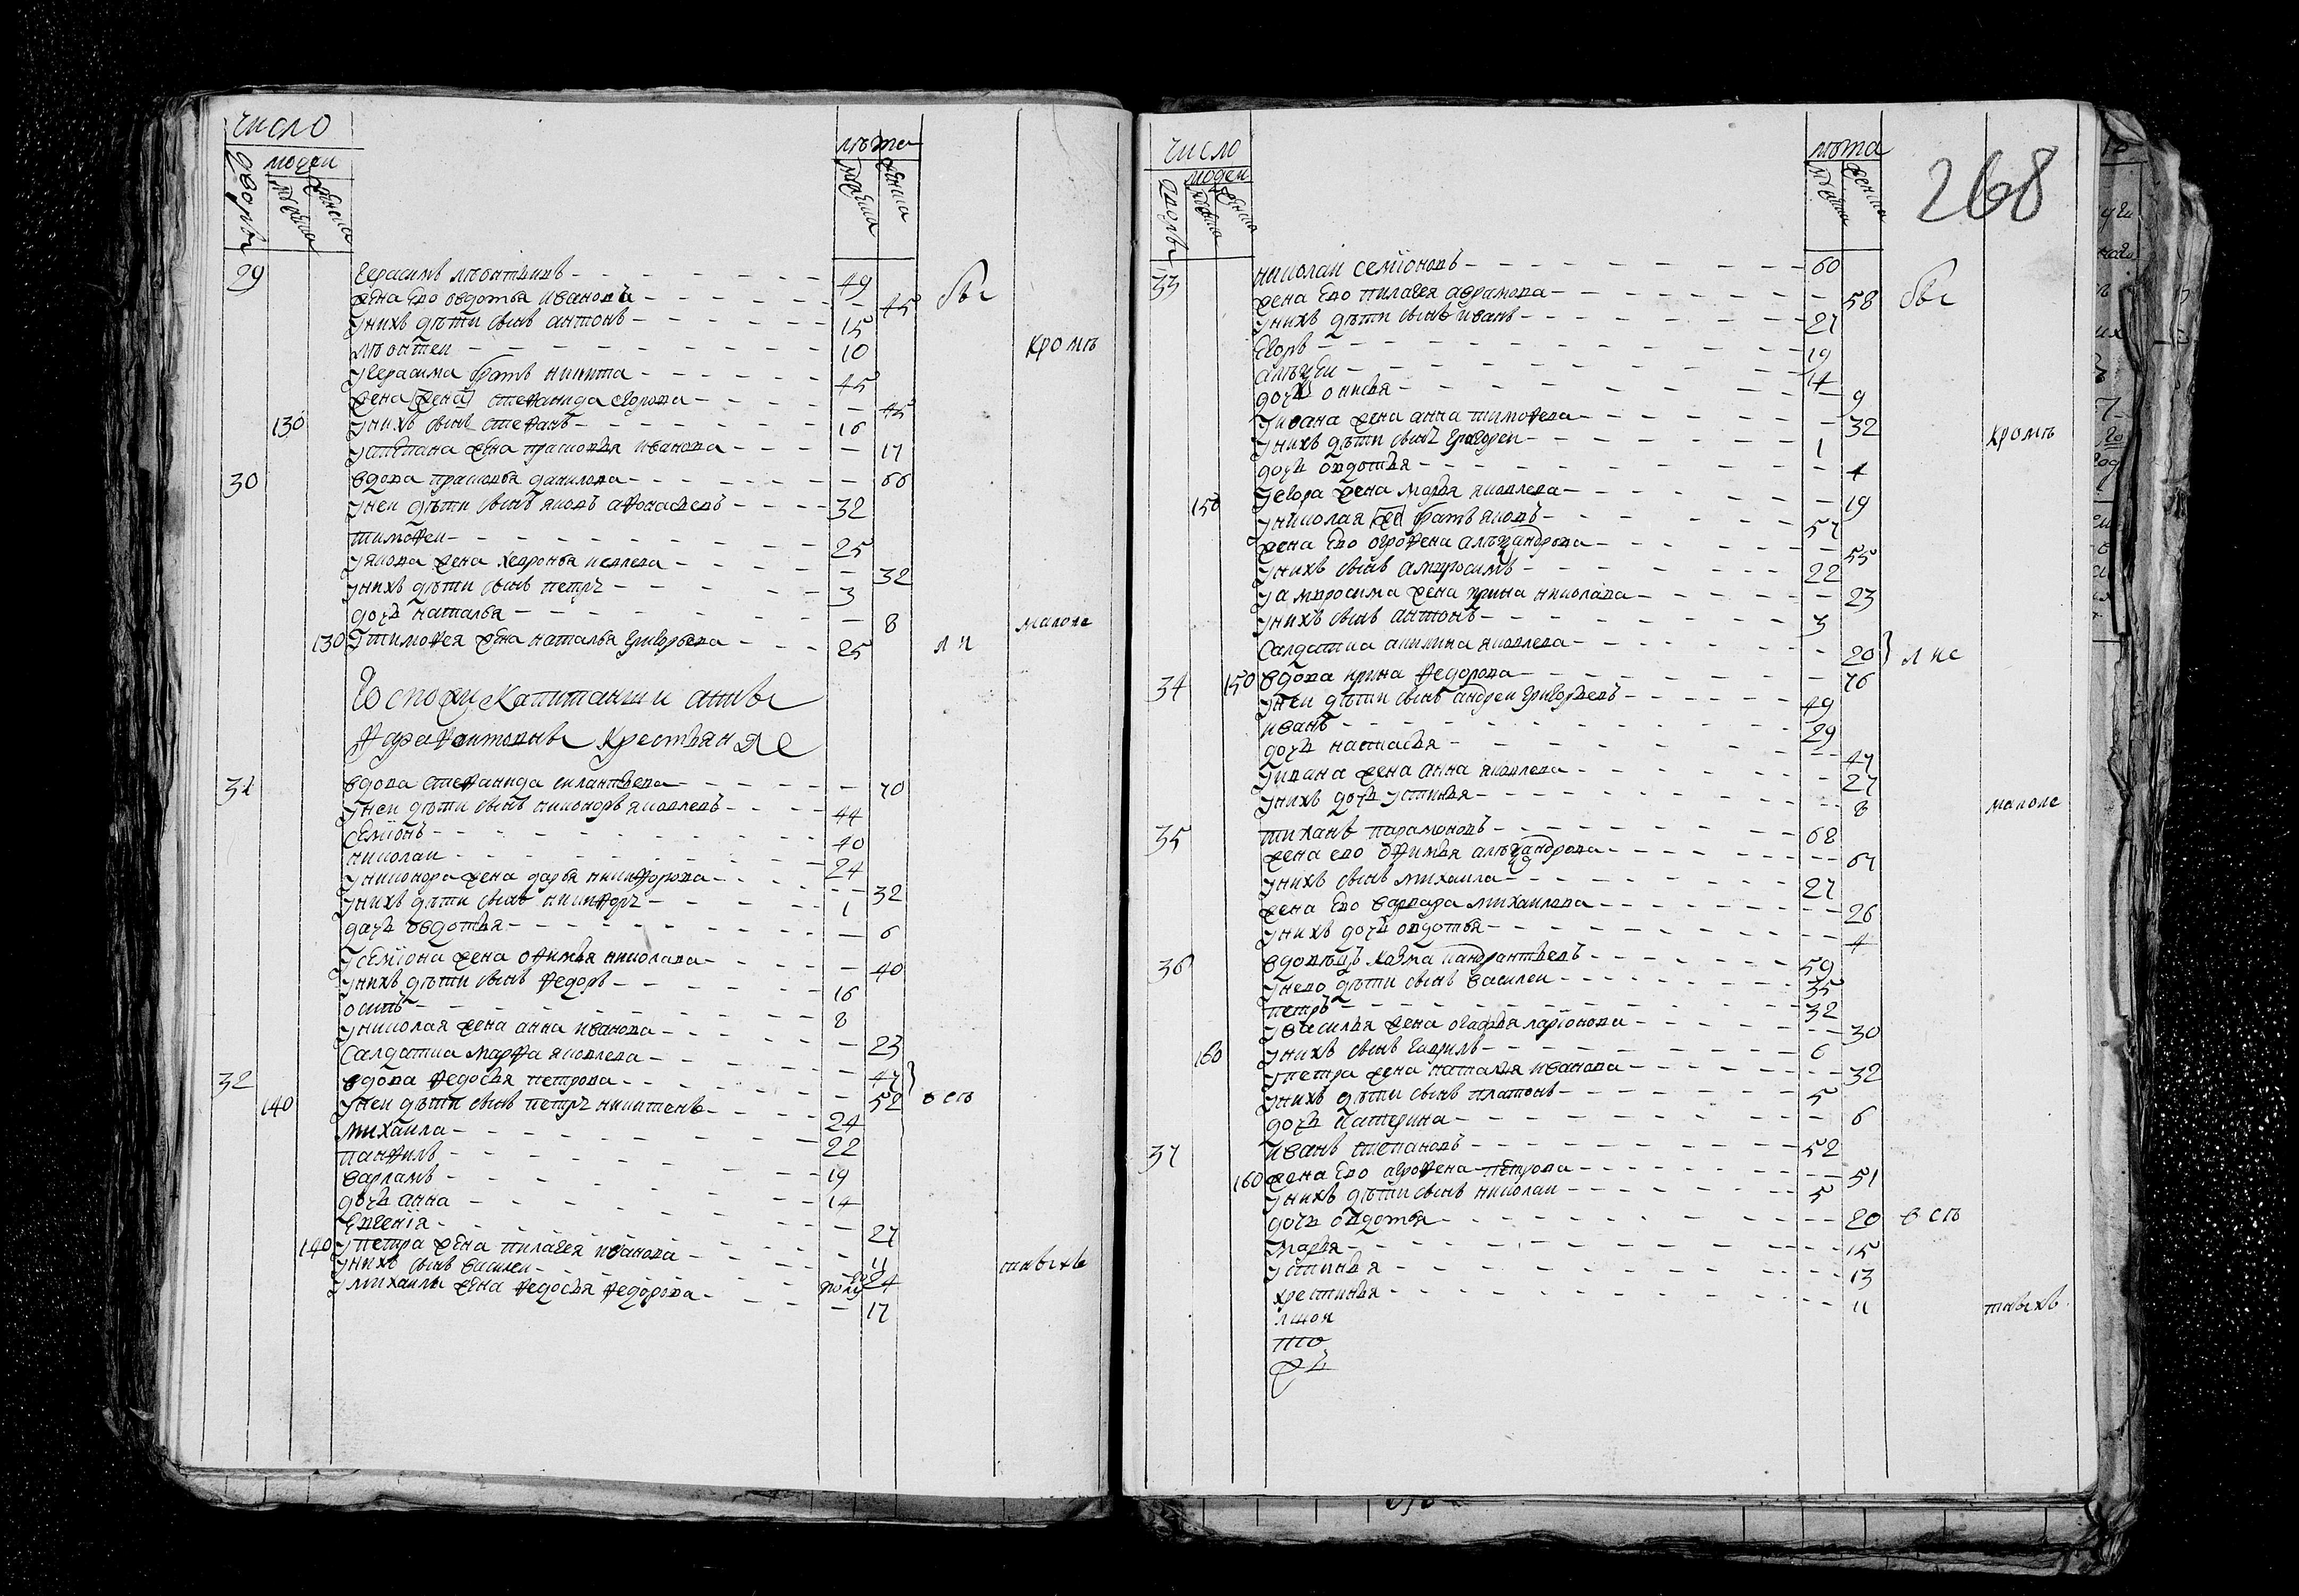 число
лѣта
дворы
людей
мужеска
женска
мужеска
женска
29 Герасимъ лѣонтьивъ 49
жена ево овдотья иванова 45 бы
у нихъ дѣти сынъ антонъ 15
лѣонтеи 10 кромъ
у герасима братъ никита 45
жена [жена] стефанида егорова 45
130 у нихъ сынъ стефанъ 16
у степана жена прасковья иванова 17
30 вдова прасковья данилова 66
у неи дѣти сынъ яковъ афонасьевъ 32
тимофеи 25
у якова жена хевронья иевлева 32
у нихъ дѣти сынъ петръ 3
дочь наталья 8 малоле
130 у тимофея жена наталья григорьева 25 л н
Госпожи Капитанши анны
крестьяне
31 вдова стефанида силантьева 70
у неи дѣти сынъ никоноръ яковлевъ 44
семіонъ 40
николаи 24
у никонора жена дарья никифорова 32
у нихъ дѣти сынъ никифоръ 1
дочь овдотья 6
у семіона жена офимья николава 40
у нихъ дѣти сынъ федоръ 16
осипъ 8
у николая жена анна иванова 23
салдатка марфа яковлева 47
32 вдова федосья петрова 52 } в сп
140 у неи дѣти сынъ петръ никитенъ 24
михаила 22
панфилъ 19
варламъ 14
дочь анна 27
евгенія 11
140 у петра жена пилагея иванова 24
у нихъ сынъ василеи полу го
у михаилы жена федосья федорова 17
268
число
лѣта
дворы
людеи
мужеска
женска
мужеска
женска
33 николаи семіоновъ 60
жена ево пилагея аврамова 58 бы
у нихъ дѣти сынъ иванъ 27
егоръ 19
алѣѯеи 14
дочь онисья 9
у ивана жена анна тимофева 32
у нихъ дѣти сынъ григореи 1 кромъ
дочь овдотья 4
150 у егора жена марья яковлева 19
у николая [же] братъ яковъ 57
жена ево огрофена алѣѯандрова 55
у нихъ сынъ амвросимъ 22
у амвросима жена ирина николава 23
у нихъ сынъ антонъ 3
салдатка акилина яковлева 20 } л не
34 150 вдова ирина федорова 76
у неи дѣти сынъ андреи григорьевъ 49
иванъ 29
дочь настасья 47
у ивана жена анна яковлева 27
у нихъ дочь устинья 8 малоле
35 тиханъ парамоновъ 68
жена ево офимья алѣѯандрова 67
у нихъ сынъ михаила 27
жена ево варвара михаилова 26
у нихъ дочь овдотья 4
36 вдовѣцъ козма кандрантьевъ 59
у нево дѣти сынъ василеи 35
петръ 32
у василья жена огафья ларіонова 30
160 у нихъ сынъ гаврилъ 6
у петра жена наталья иванова 32
у нихъ дѣти сынъ платонъ 5
дочь катерина 6
37 иванъ степановъ 52
160 жена ево агрофена петрова 51
у нихъ дѣти сынъ николаи 5
дочь овдотья 20 в сп
марья 15
устинья 13
хрестинья 11